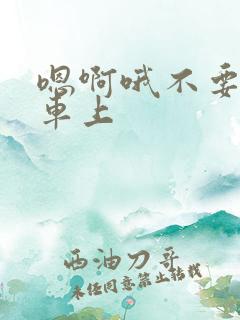 嗯啊哦不要
车上
西油刀哥
未经同意禁止转载